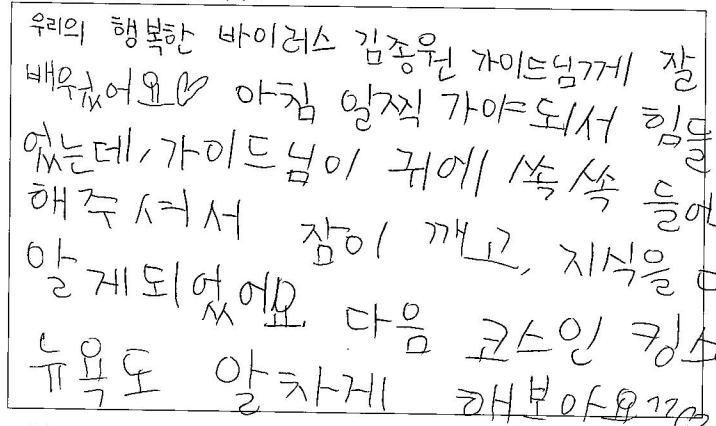 우리의 행복한 바이러스 김종원 가이드님께 잘
배웠어요♡ 아침 일찍 가야되서 힘들
었는데, 가이드님이 귀에 쏙쏙
해주셔서 잠이 깨고, 지식을
알게되었어요 다음 코스인
뉴욕도 알차게 해보아요